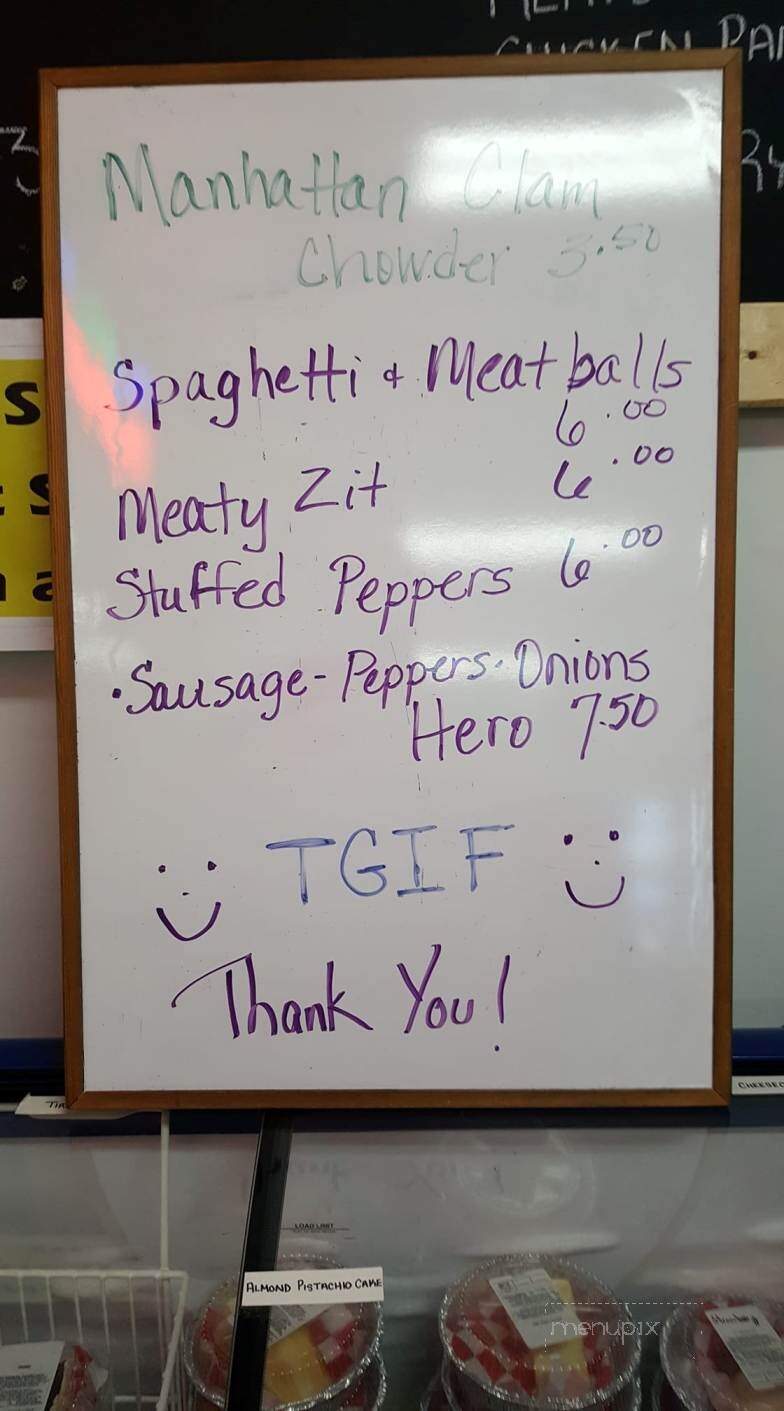 Manhattan Clam
Chowder 3.50
Spaghetti + Meatballs
6.00
Meaty Zit 6.00
Stuffed Peppers 6.00
·Sausage-Peppers·Onions
Hero 7.50
TGIF
Thank You!
LOAD LIMIT
ALMOND PISTACHIO CAKE
menupix